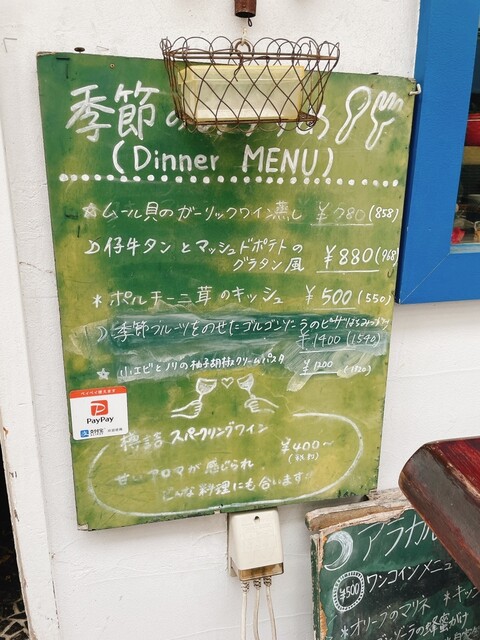 季節の
(Dinner MENU)
☆ムール貝のガーリックワイン蒸し ¥780(858)
仔牛タンとマッシュドポテトの
グラタン風 ¥880(968)
*ポルチーニ茸のキッシュ ¥500(550)
季節フルーツをのせたゴルゴンゾーラのピザはちみつ
¥1400(1540)
☆小エビとノリの柚子胡椒クリームパスタ ¥1200(1320)
PayPay
樽詰スパークリングワイン ¥400~
(440)
甘いアロマが感じられ
どんな料理にも合います!
アラカル
¥500 ワンコインメニュー
*オリーブのマリネ *キッシ